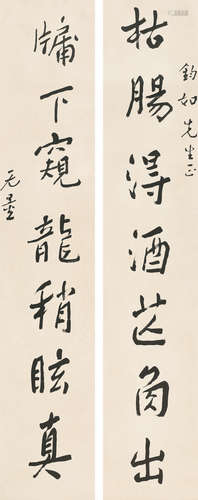 枯腸得酒芒角出
鈞如先生正
牖下窺龍稍眩真
无量